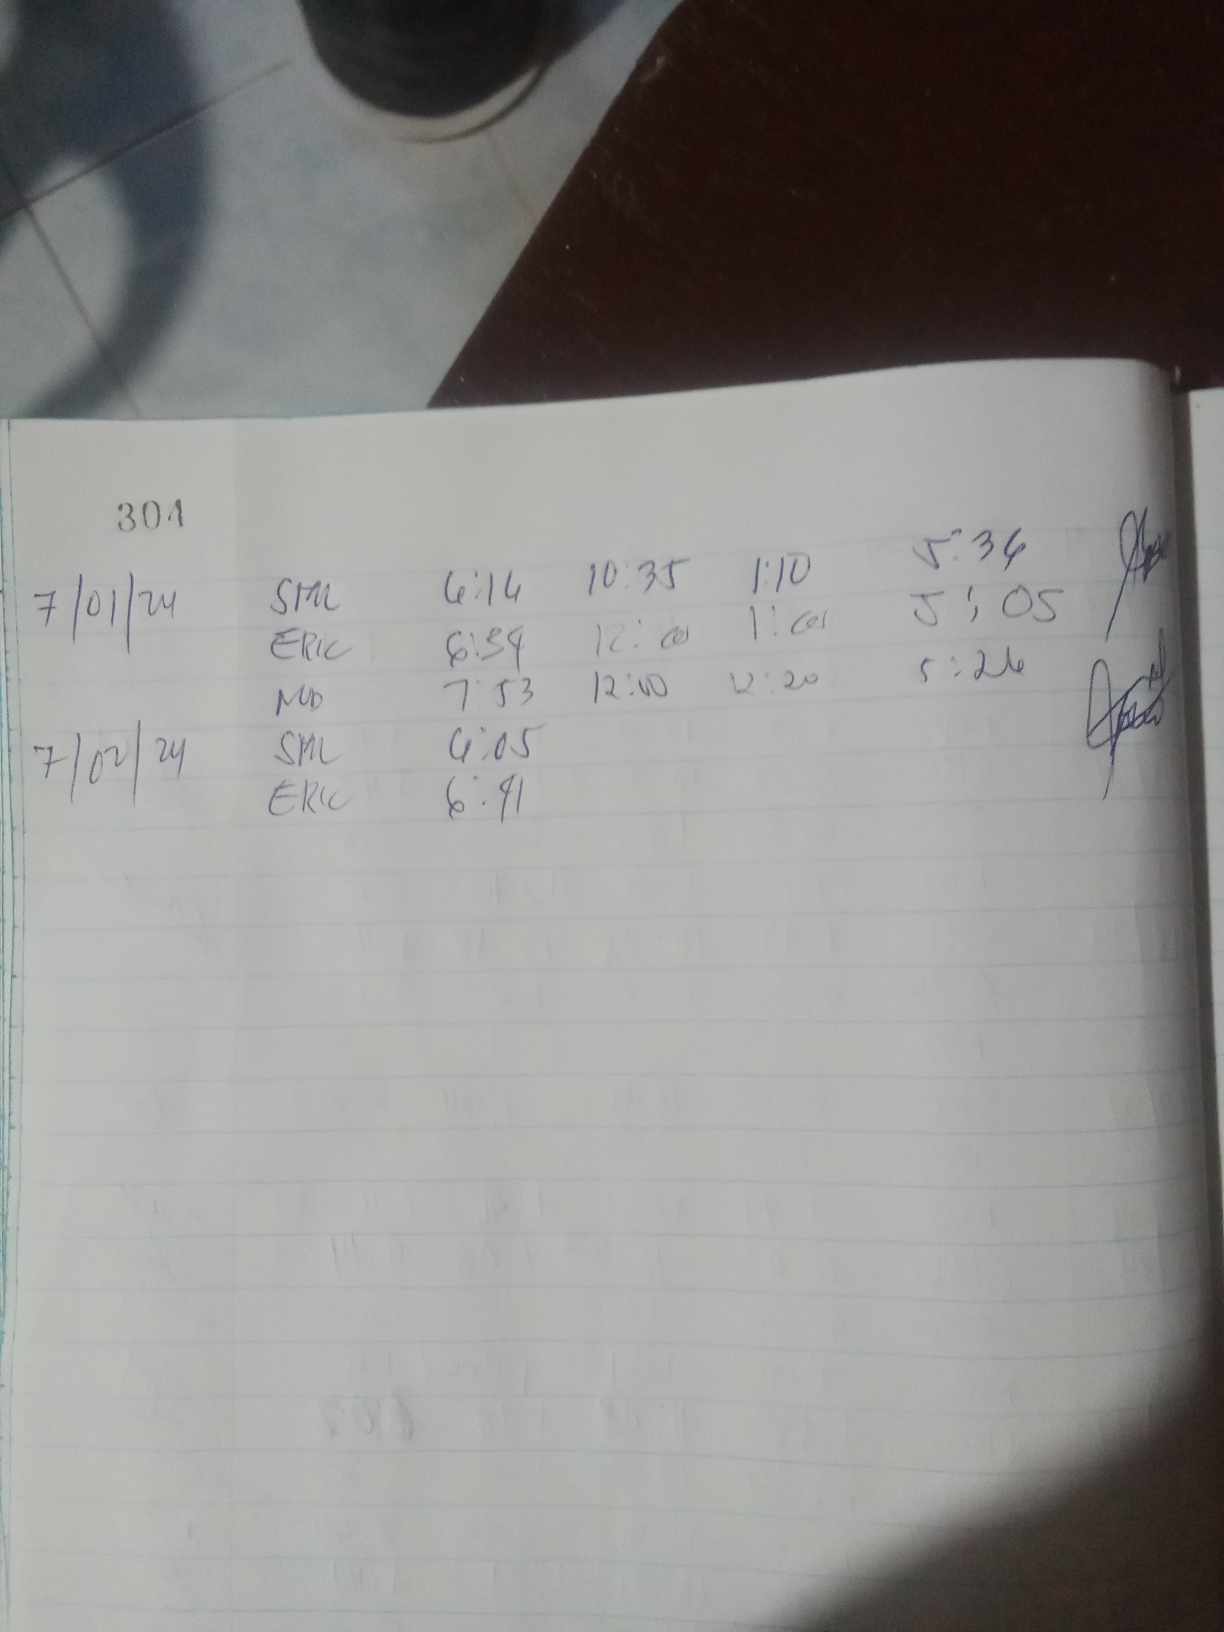 301
7/01/24 SML 6:14 10:35 1:10 5:34
ERIC 6:39 12:00 1:00 5:05
7:53 12:00 12:20 5:26
7/02/24 SML 6:05
ERIC 6:41